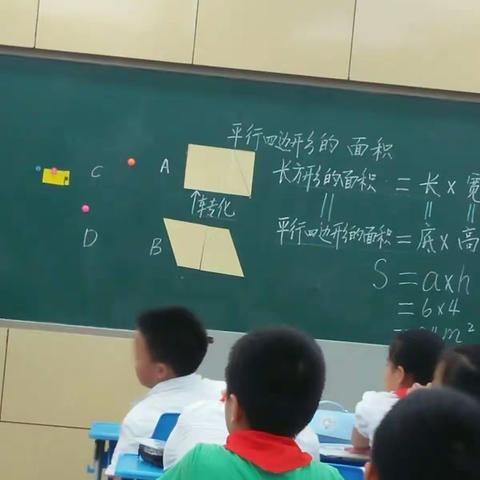 平行四边形的 面积
C
A
长方形的面积 = 长 × 宽
↑转化
||
||
||
D
B
平行四边形的面积 = 底 × 高
S = a×h
= 6×4
m²